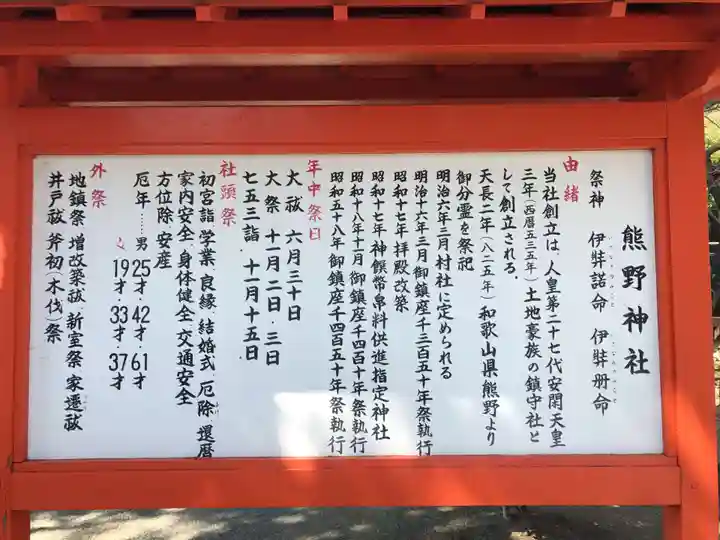 熊野神社
祭神　伊弉諾命　伊弉册命
由緒
当社創立は、人皇第二十七代安閑天皇
三年（西暦五三五年）土地豪族の鎮守社と
して創立される。
天長二年（八二五年）和歌山県熊野より
御分霊を祭祀
明治六年三月村社に定められる
明治十六年三月御鎮座千三百五十年祭執行
昭和十七年拝殿改築
昭和十七年神饌幣帛料供進指定神社
昭和十八年十一月御鎮座千四百十年祭執行
昭和五十八年御鎮座千四百五十年祭執行
年中祭日
大祓　六月三十日
大祭　十一月二日・三日
七五三詣．十一月十五日
社頭祭
初宮詣．学業．良縁．結婚式．厄除．還暦
家内安全．身体健全．交通安全
方位除．安産
厄年……男25才・42才・61才
〃　19才・33才・37才
外祭
地鎮祭．増改築祓．新室祭．家遷祓
井戸祓．斧初（木伐）祭